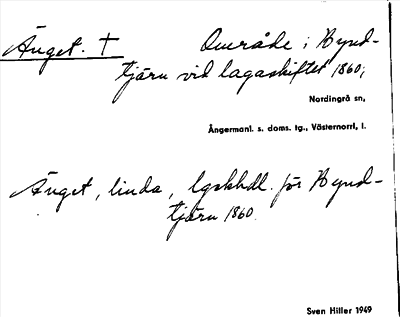 Änget. † Område i Rynd-
tjärn vid lagaskiftet 1860;
Nordingrå sn,
Ångermanl. s. doms. tg., Västernorrl, l.
Änget, linda, lgskhdl. för Rynd-
tjärn 1860.
Sven Hiller 1949